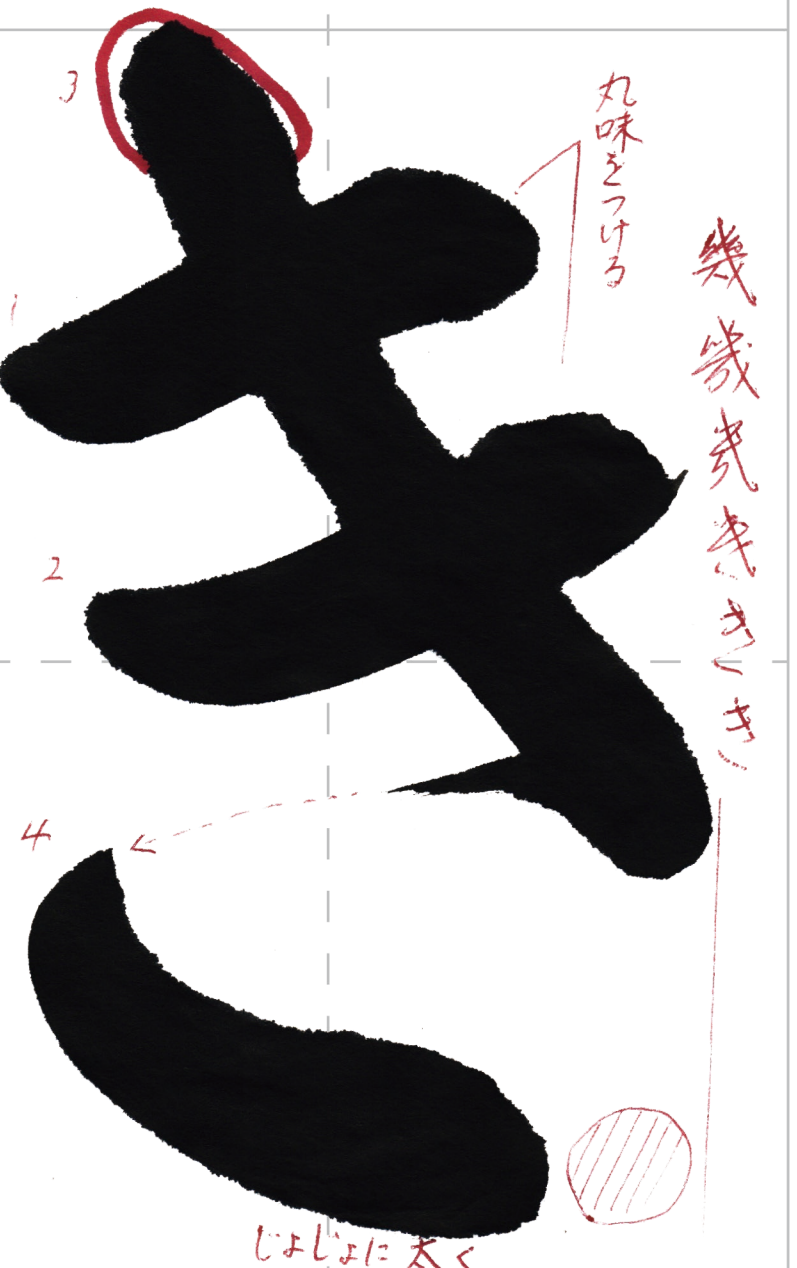 き
3
1
2
4
丸味をつける
幾幾㡬きき
じょじょに太く